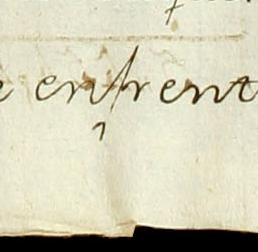 e enfrent